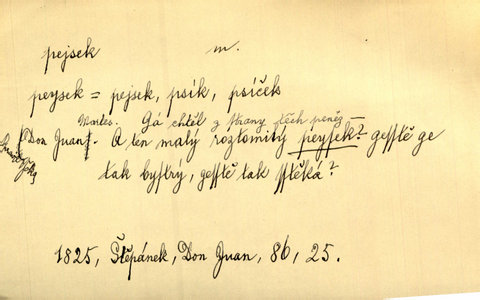 pejsek m.
peysek = pejsek, psík, psíček
Martes. Gá chtěl z strany těch peněz —
[Don Juan]. A ten malý roztomilý peysek? gesstě ge
tak bystrý, gesstě tak sstěká?
1825, Štěpánek, Don Juan, 86, 25.